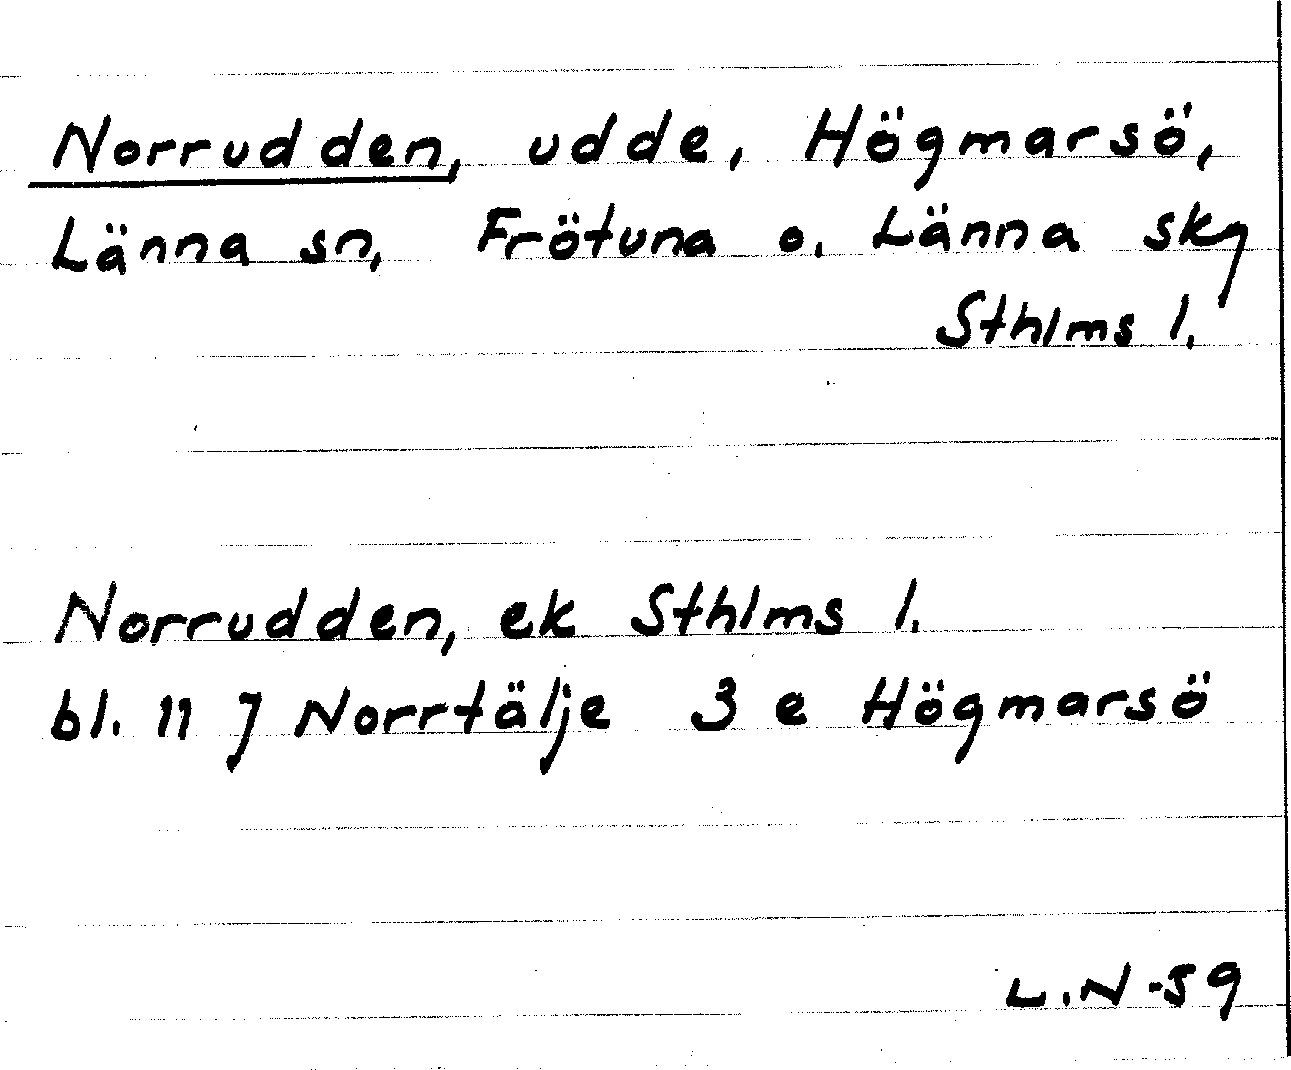 Norrudden, udde, Högmarsö,
Länna sn, Frötuna o. Länna skg
Sthlms l.
Norrudden, ek Sthlms l.
bl. 11 J Norrtälje 3 e Högmarsö
L.N -59